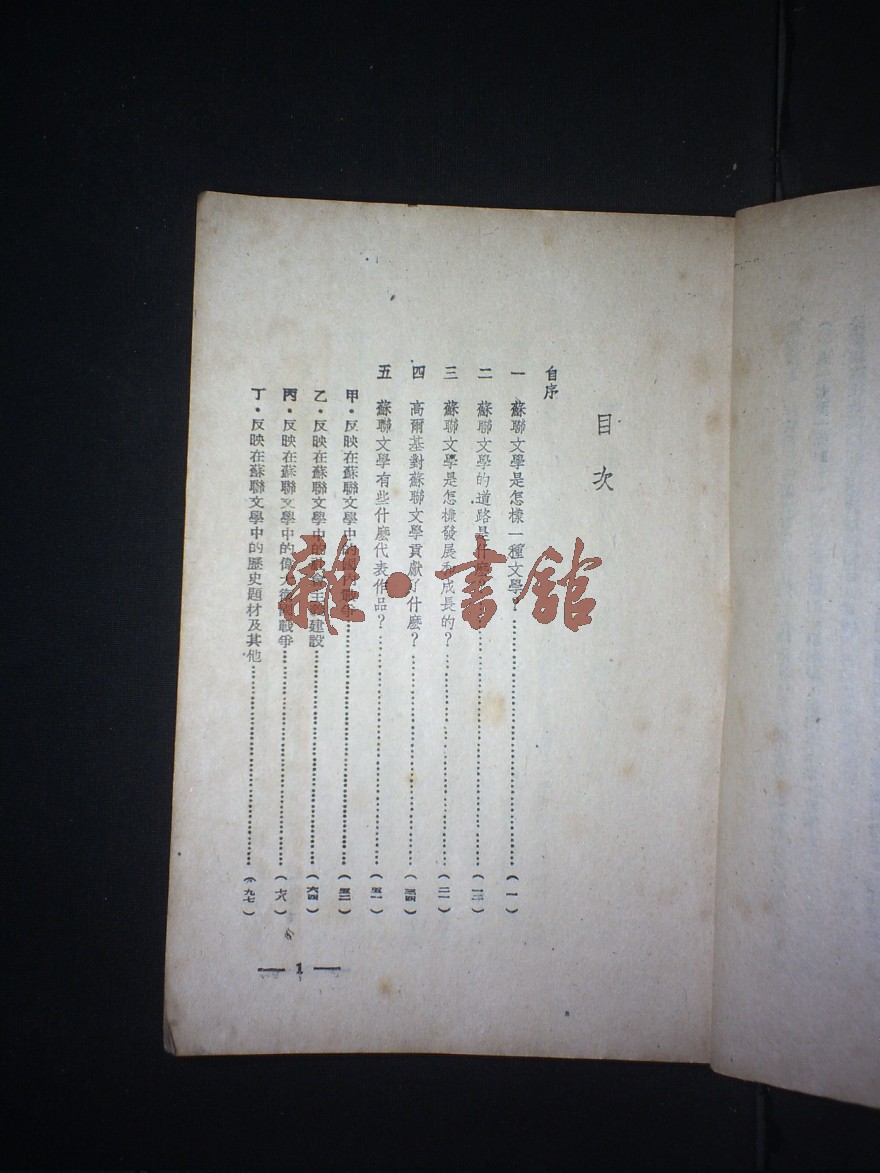 目次
自序
一 蘇聯文學是怎樣一種文學？……(一)
二 蘇聯文學的道路是什麼？……(一二)
三 蘇聯文學是怎樣發展和成長的？……(二一)
四 高爾基對蘇聯文學貢獻了什麼？……(三四)
五 蘇聯文學有些什麼代表作品？……(五一)
甲．反映在蘇聯文學中的國內戰爭……(五二)
乙．反映在蘇聯文學中的社會主義建設……(六四)
丙．反映在蘇聯文學中的偉大衛國戰爭……(七八)
丁．反映在蘇聯文學中的歷史題材及其他……(九七)
— 1 —
雜·書館